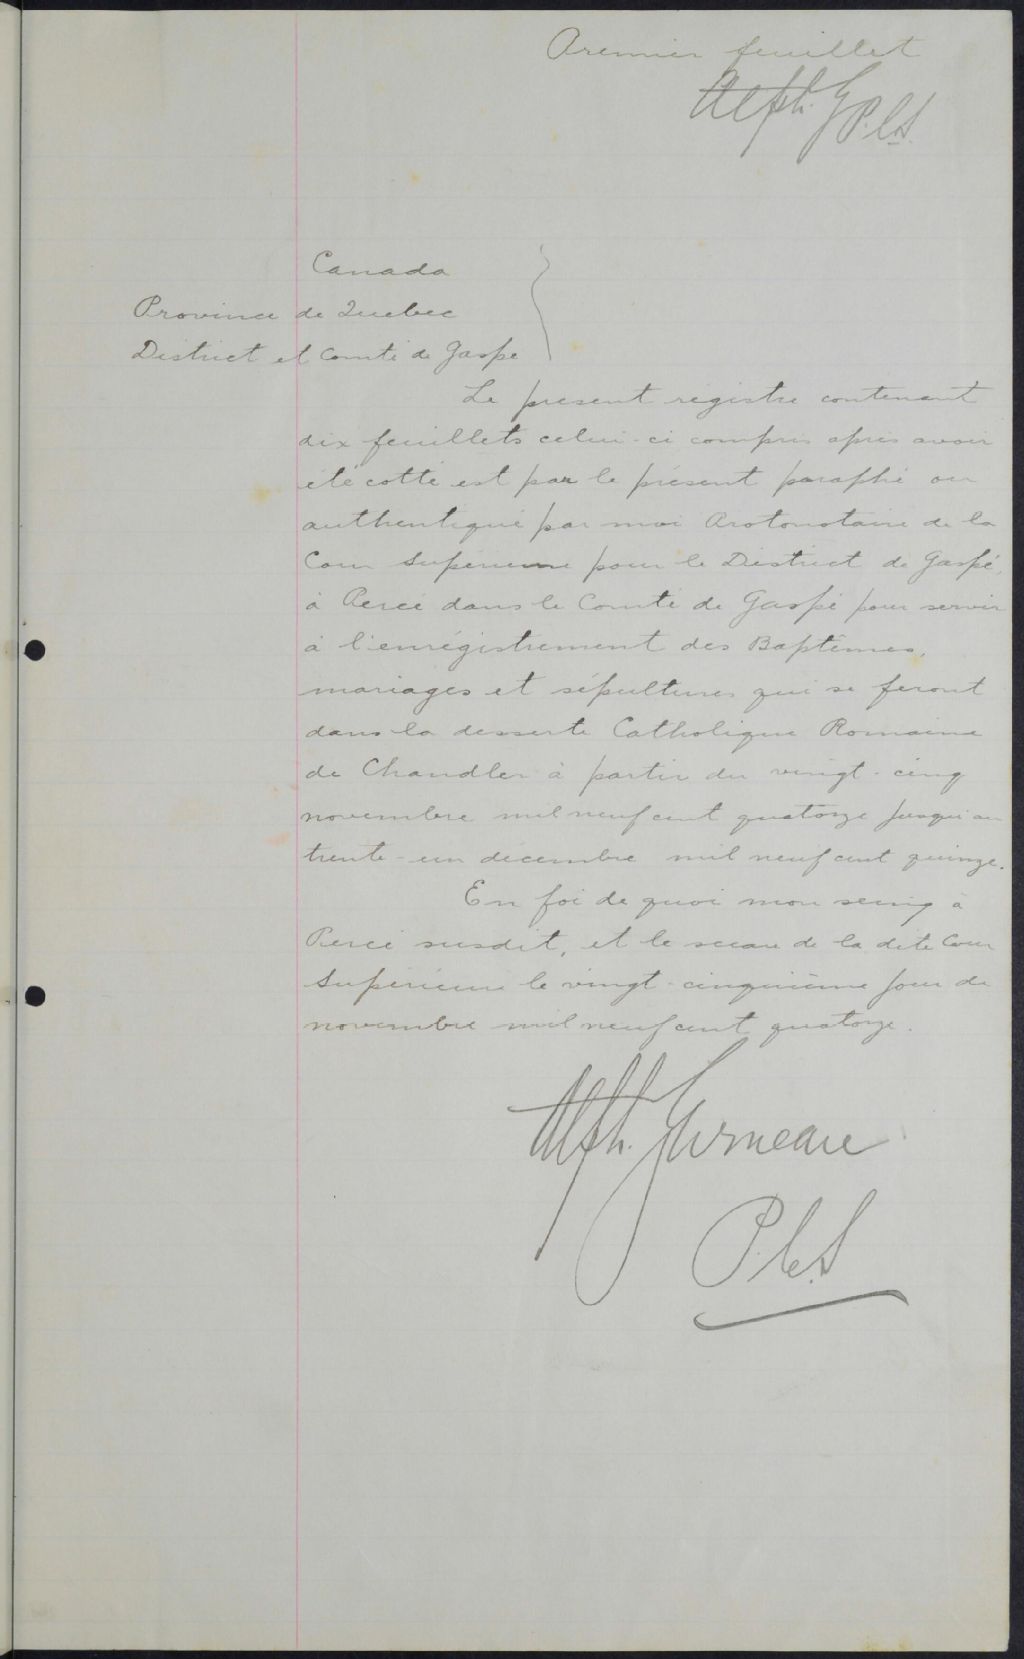 Premier feuillet
Alph. G P.C.S.
Canada
Province de Quebec
District et Comté de Gaspe
Le present régistre contenant
dix feuillets celui-ci compris après avoir
été cotté est par le présent paraphé ou
authentiqué par moi Protonotaire de la
Cour Supérieure pour le District de Gaspé,
à Percé dans le Comté de Gaspé pour servir
à l'enrégistrement des Baptêmes,
mariages et sépultures qui se feront
dans la desserte Catholique Romaine
de Chandler à partir du vingt-cinq
novembre mil neuf cent quatorze jusqu'au
trente-un décembre mil neuf cent quinze.
En foi de quoi mon seing à
Percé susdit, et le sceau de la dite Cour
Supérieure le vingt-cinquième jour de
novembre mil neuf cent quatorze.
Alph. Garneau
P.C.S